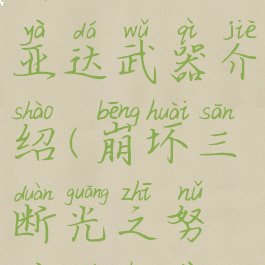 yà dá wǔ qì jiè
亚达武器介
shào bēng huài sān
绍(崩坏三
duàn guāng zhī nǔ
断光之努